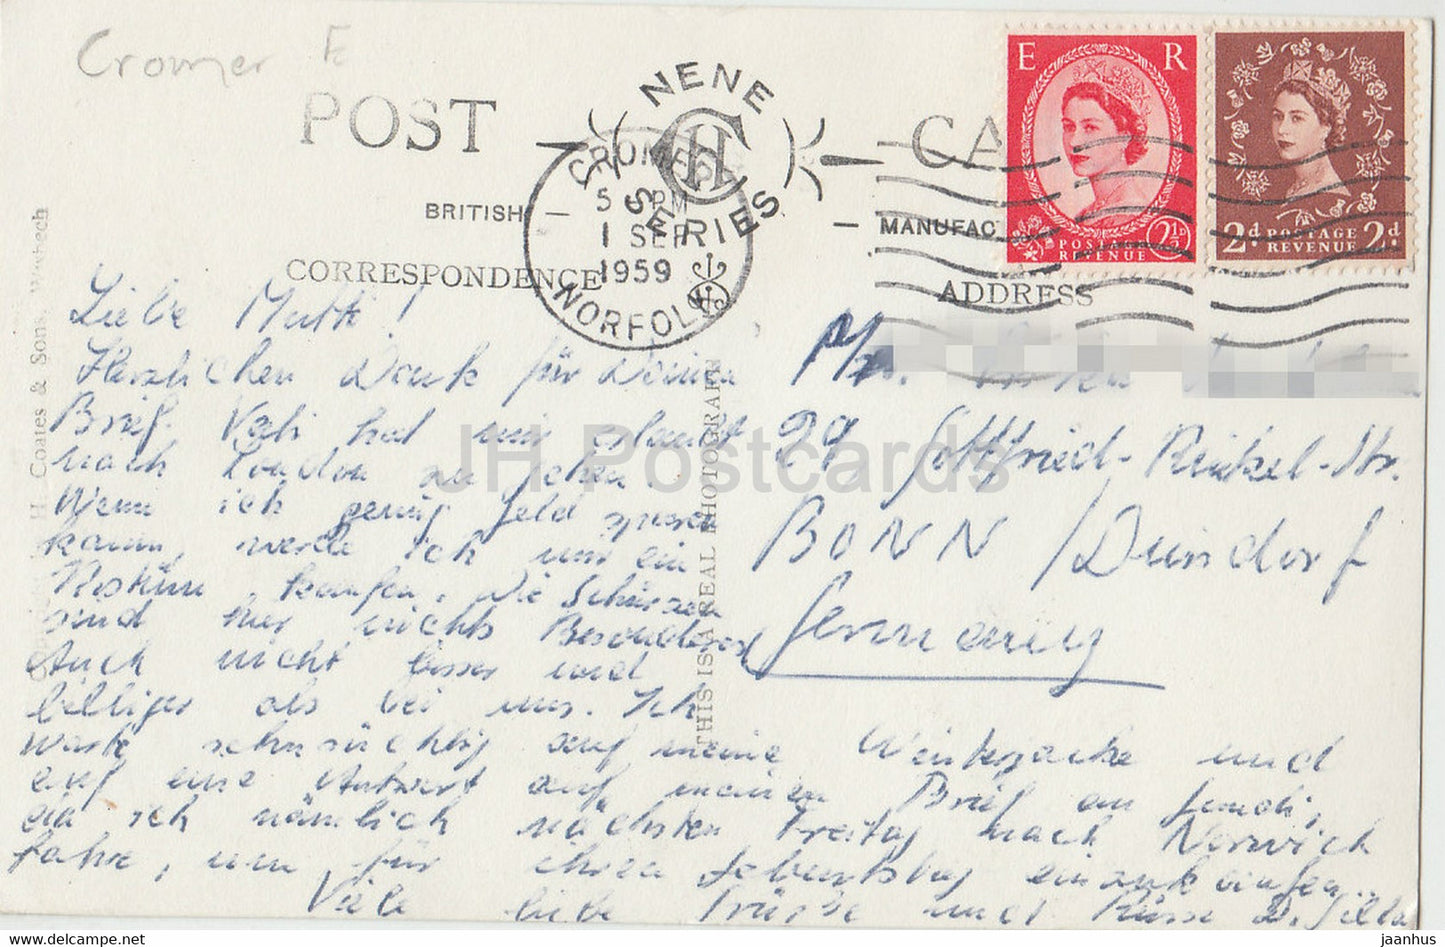 Cromer E
POST CA
NENE
SERIES
CH
CROMER
5 PM
1 SEP
1959
NORFOLK
BRITISH — — MANUFAC
CORRESPONDENCE
ADDRESS
E R
POSTAGE
REVENUE
2½D
2d POSTAGE 2d
REVENUE
H. Coates & Sons, Wisbech
THIS IS A REAL PHOTOGRAPH
JH Postcards
Liebe Mutti!
Herzlichen Dank für Deinen
Brief. Vati hat mir erlaubt
nach London zu gehen.
Wenn ich genug Geld sparen
kann, werde ich mir ein
Kostüm kaufen. Die Schürzen
sind hier nichts Besonderes
Auch nicht besser und
billiger als bei uns. Ich
warte sehnsüchtig auf meine Winterjacke und
auf eine Antwort auf meinen Brief an
da ich nämlich nächsten Freitag nach Norwich
fahre, um für ihren Geburtstag einzukaufen...
Viele liebe Grüße und Küsse D.
29 Gottfried-Kinkel-Str.
BONN / Duisdorf
Germany
jaanhus